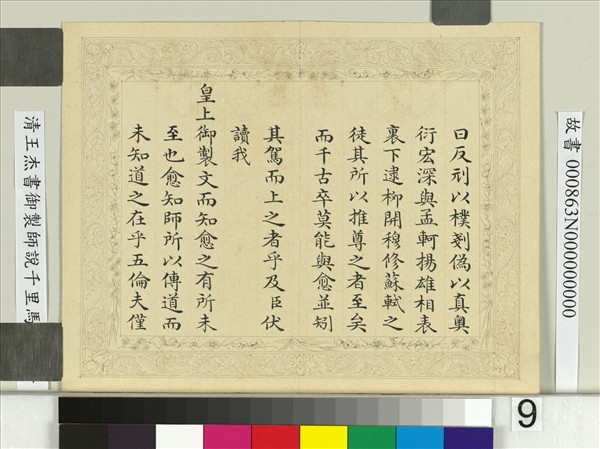 故書 000863N000000000
曰反刓以樸剗偽以真奧
衍宏深與孟軻揚雄相表
裏下逮柳開穆修蘇軾之
徒其所以推尊之者至矣
而千古卒莫能與愈並矧
其駕而上之者乎及臣伏
讀我
皇上御製文而知愈之有所未
至也愈知師所以傳道而
未知道之在乎五倫夫僅
清王杰書御製師說千里馬
9